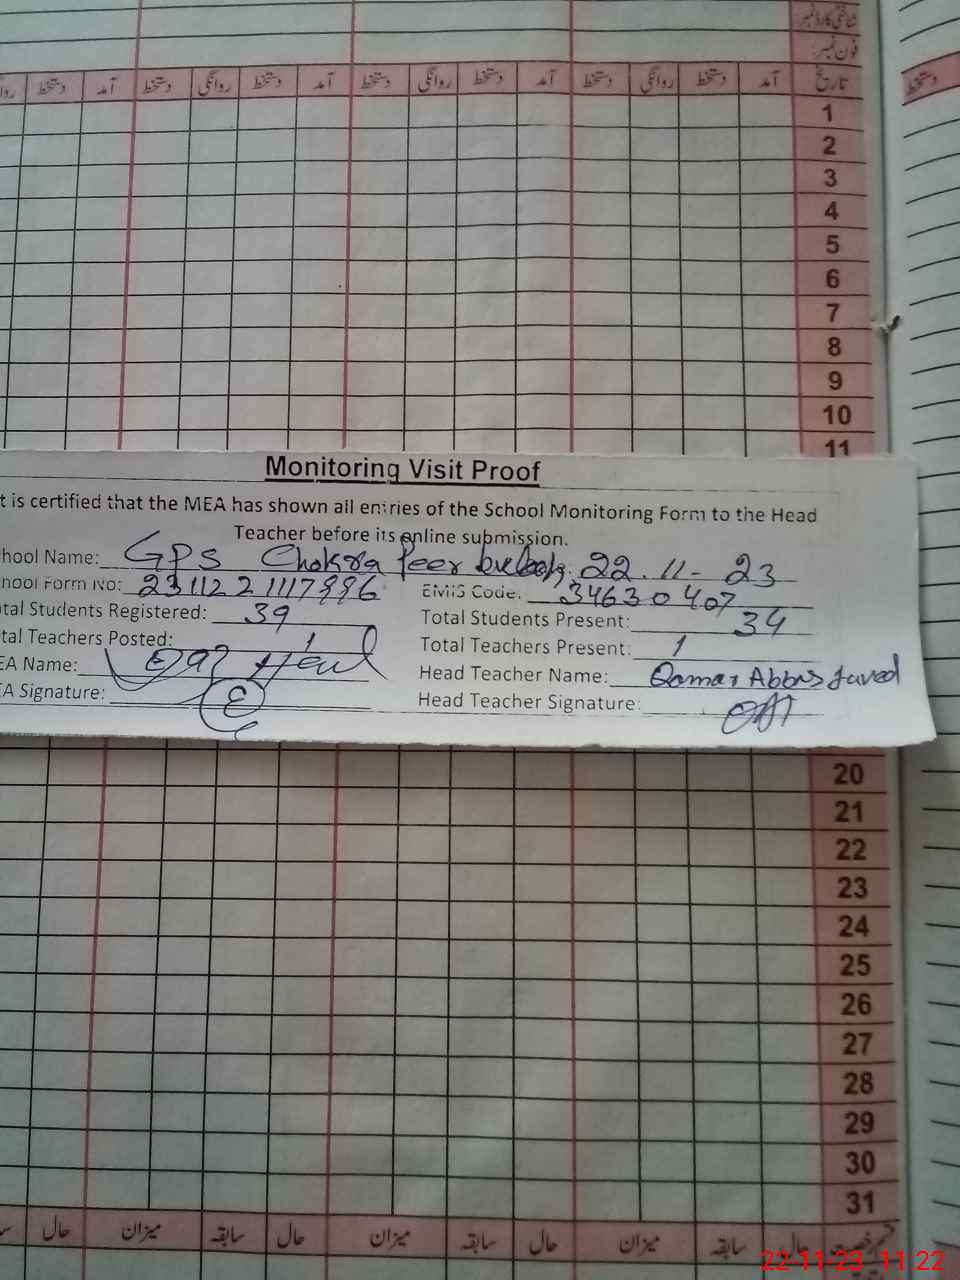 شناختی کارڈ نمبر
فون نمبر:
تاریخ آمد دستخط روانگی دستخط آمد دستخط روانگی دستخط آمد دستخط روانگی دستخط آمد دستخط
دستخط
1
2
3
4
5
6
7
8
9
10
11
Monitoring Visit Proof
t is certified that the MEA has shown all entries of the School Monitoring Form to the Head
Teacher before its online submission.
hool Name: GPS Chokra Peer 22.11-23
hool Form No: 231122 1117996 EMIS Code: 34630407
tal Students Registered: 39 Total Students Present: 34
tal Teachers Posted: 1 Total Teachers Present: 1
EA Name: Head Teacher Name: Qamar Abbas Javed
EA Signature: Head Teacher Signature:
20
21
22
23
24
25
26
27
28
29
30
31
حال سابقہ میزان حال سابقہ میزان حال سابقہ میزان حال
22-11-23 11:22